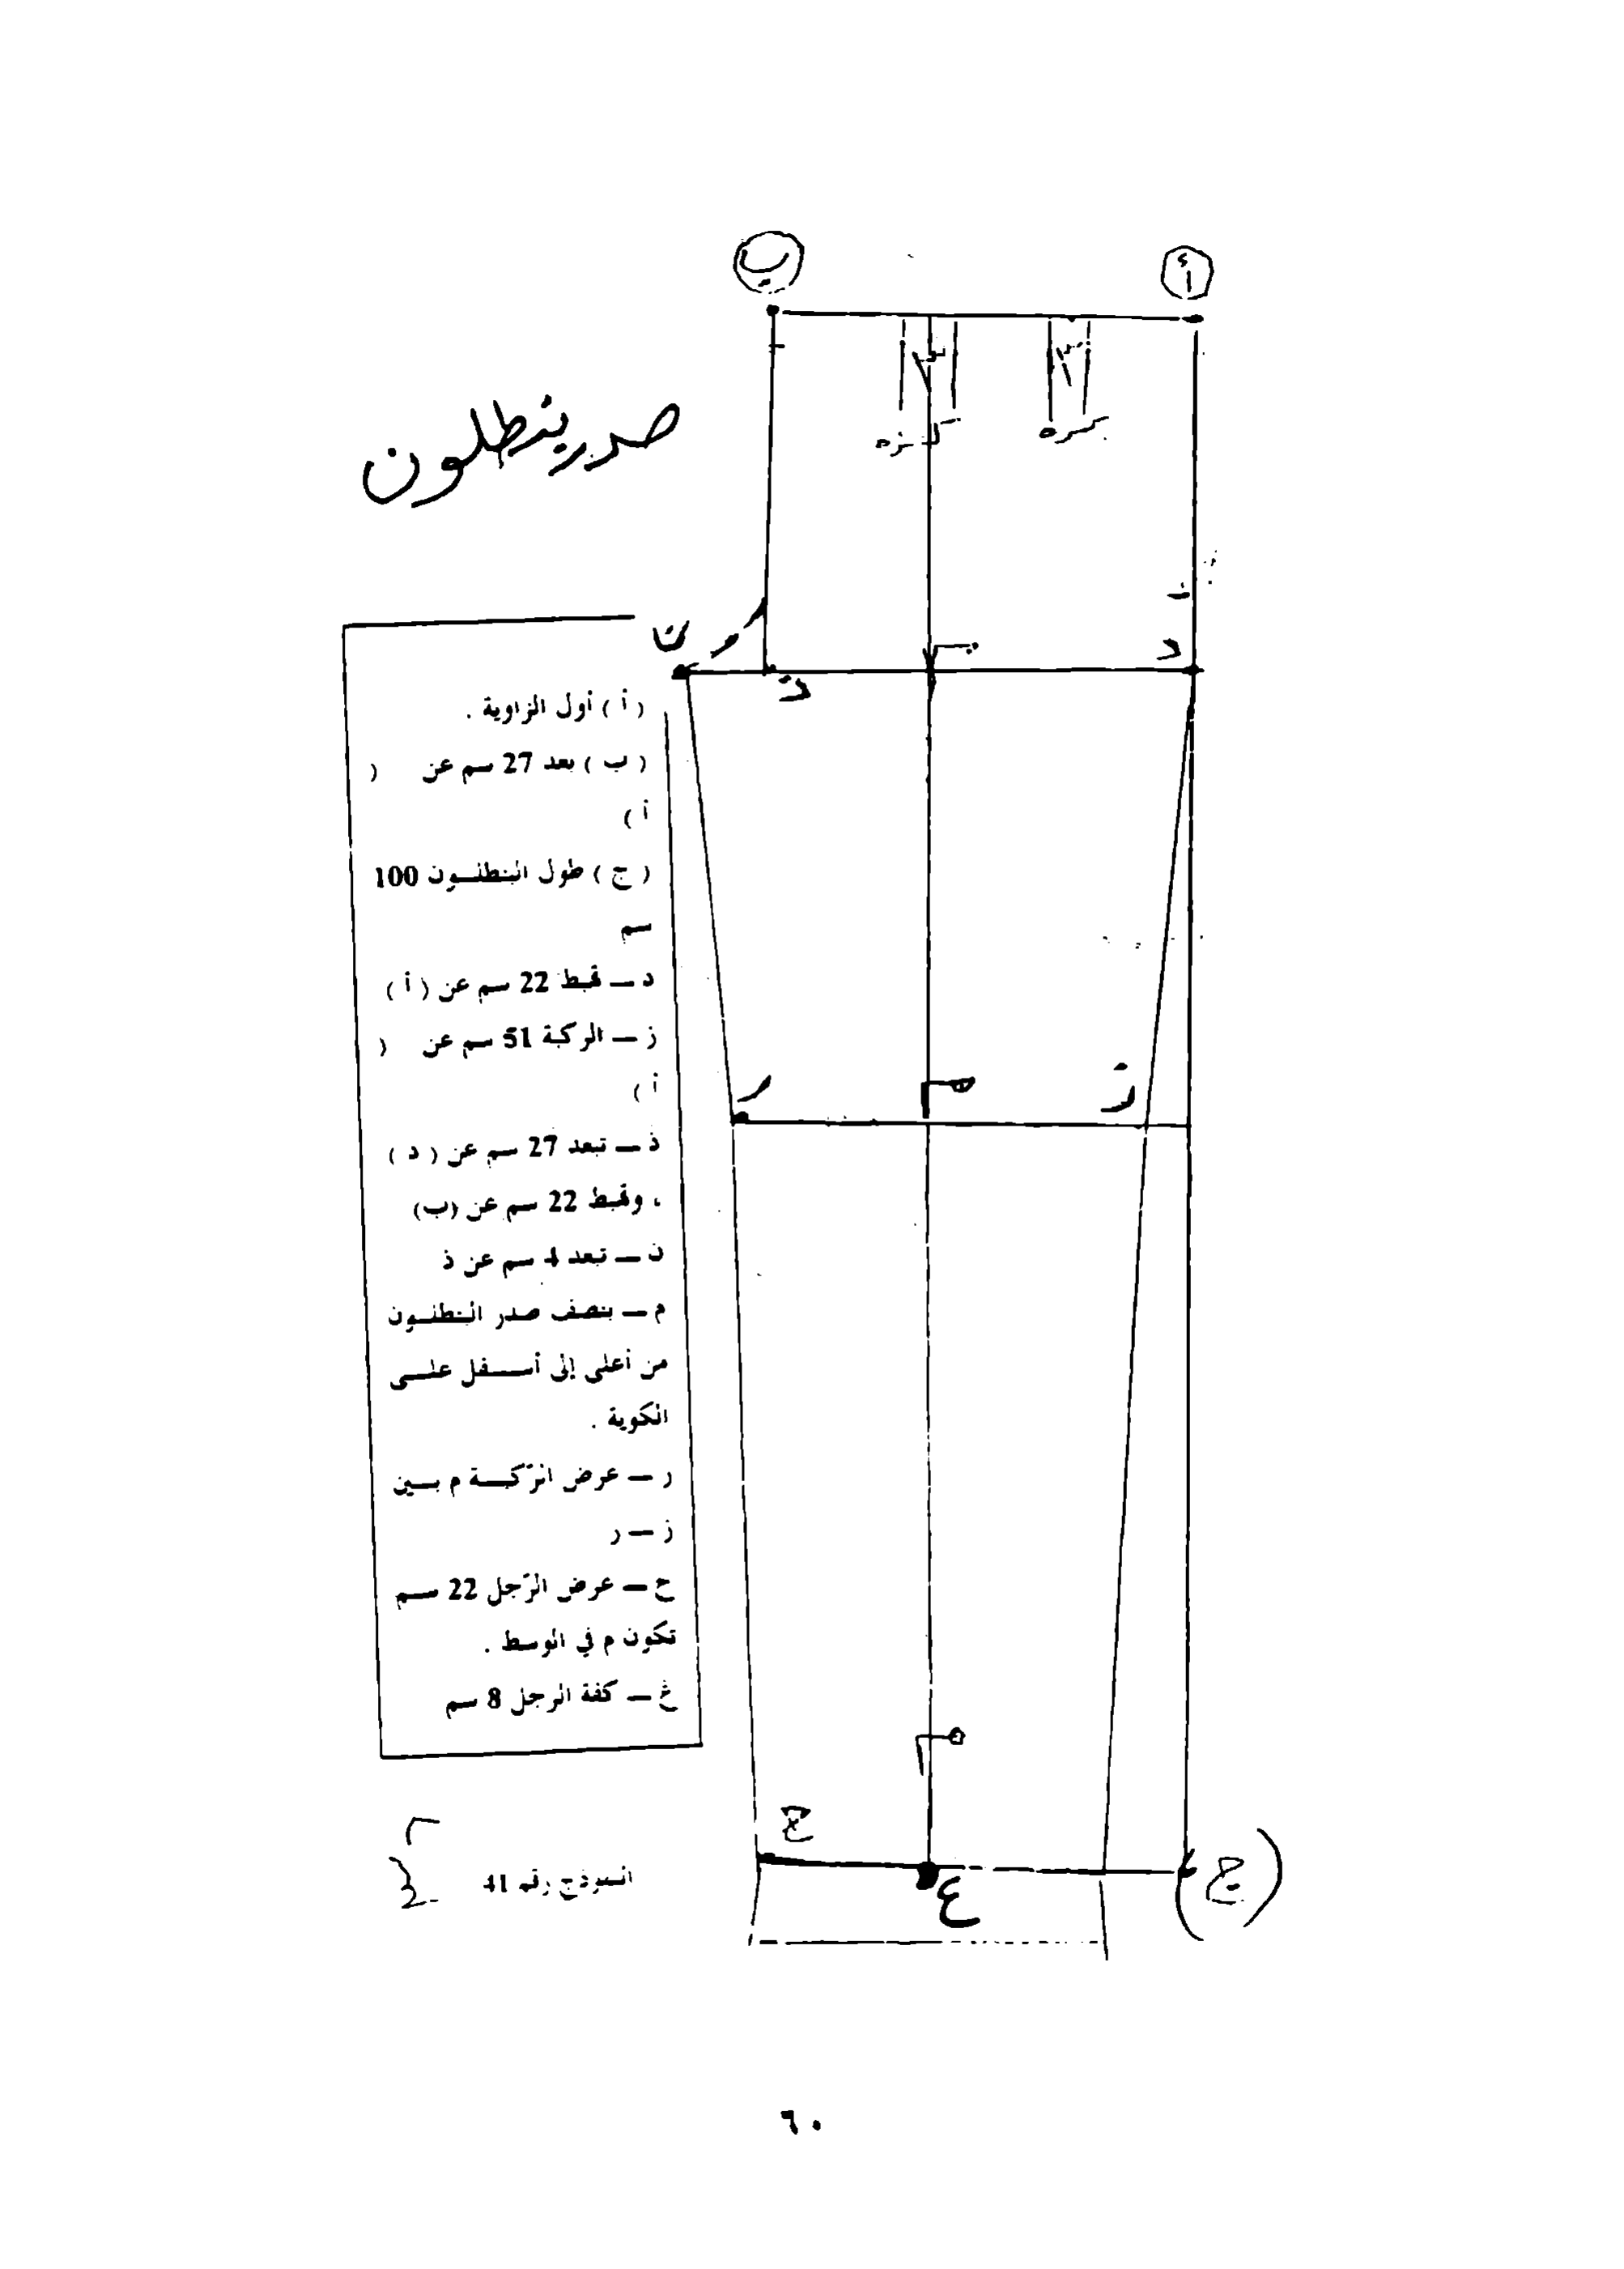 ب
أ
٣
٣
كسره
كسره
صدر بنطلون
ن
د
ذ
م
( أ ) أول الزاوية .
( ب ) بعد 27 سم عن (
أ )
( ج ) طول البنطلون 100
سم
د – قبط 22 سم عن ( أ )
ز – الركبة 51 سم عن (
أ )
ذ – تبعد 27 سم عن ( د )
، وقبط 22 سم عن (ب)
ن – تبعد 4 سم عن ذ
م – بنصف صدر البنطلون
من أعلى إلى أسفل على
الكوية .
ر – عرض الركبة م بين
ز – ر
ح – عرض الرّجل 22 سم
تكون م في الوسط .
غ – كفة الرجل 8 سم
ر
م
ز
م
ح
ع
(ج)
النموذج رقم 41
٦٠